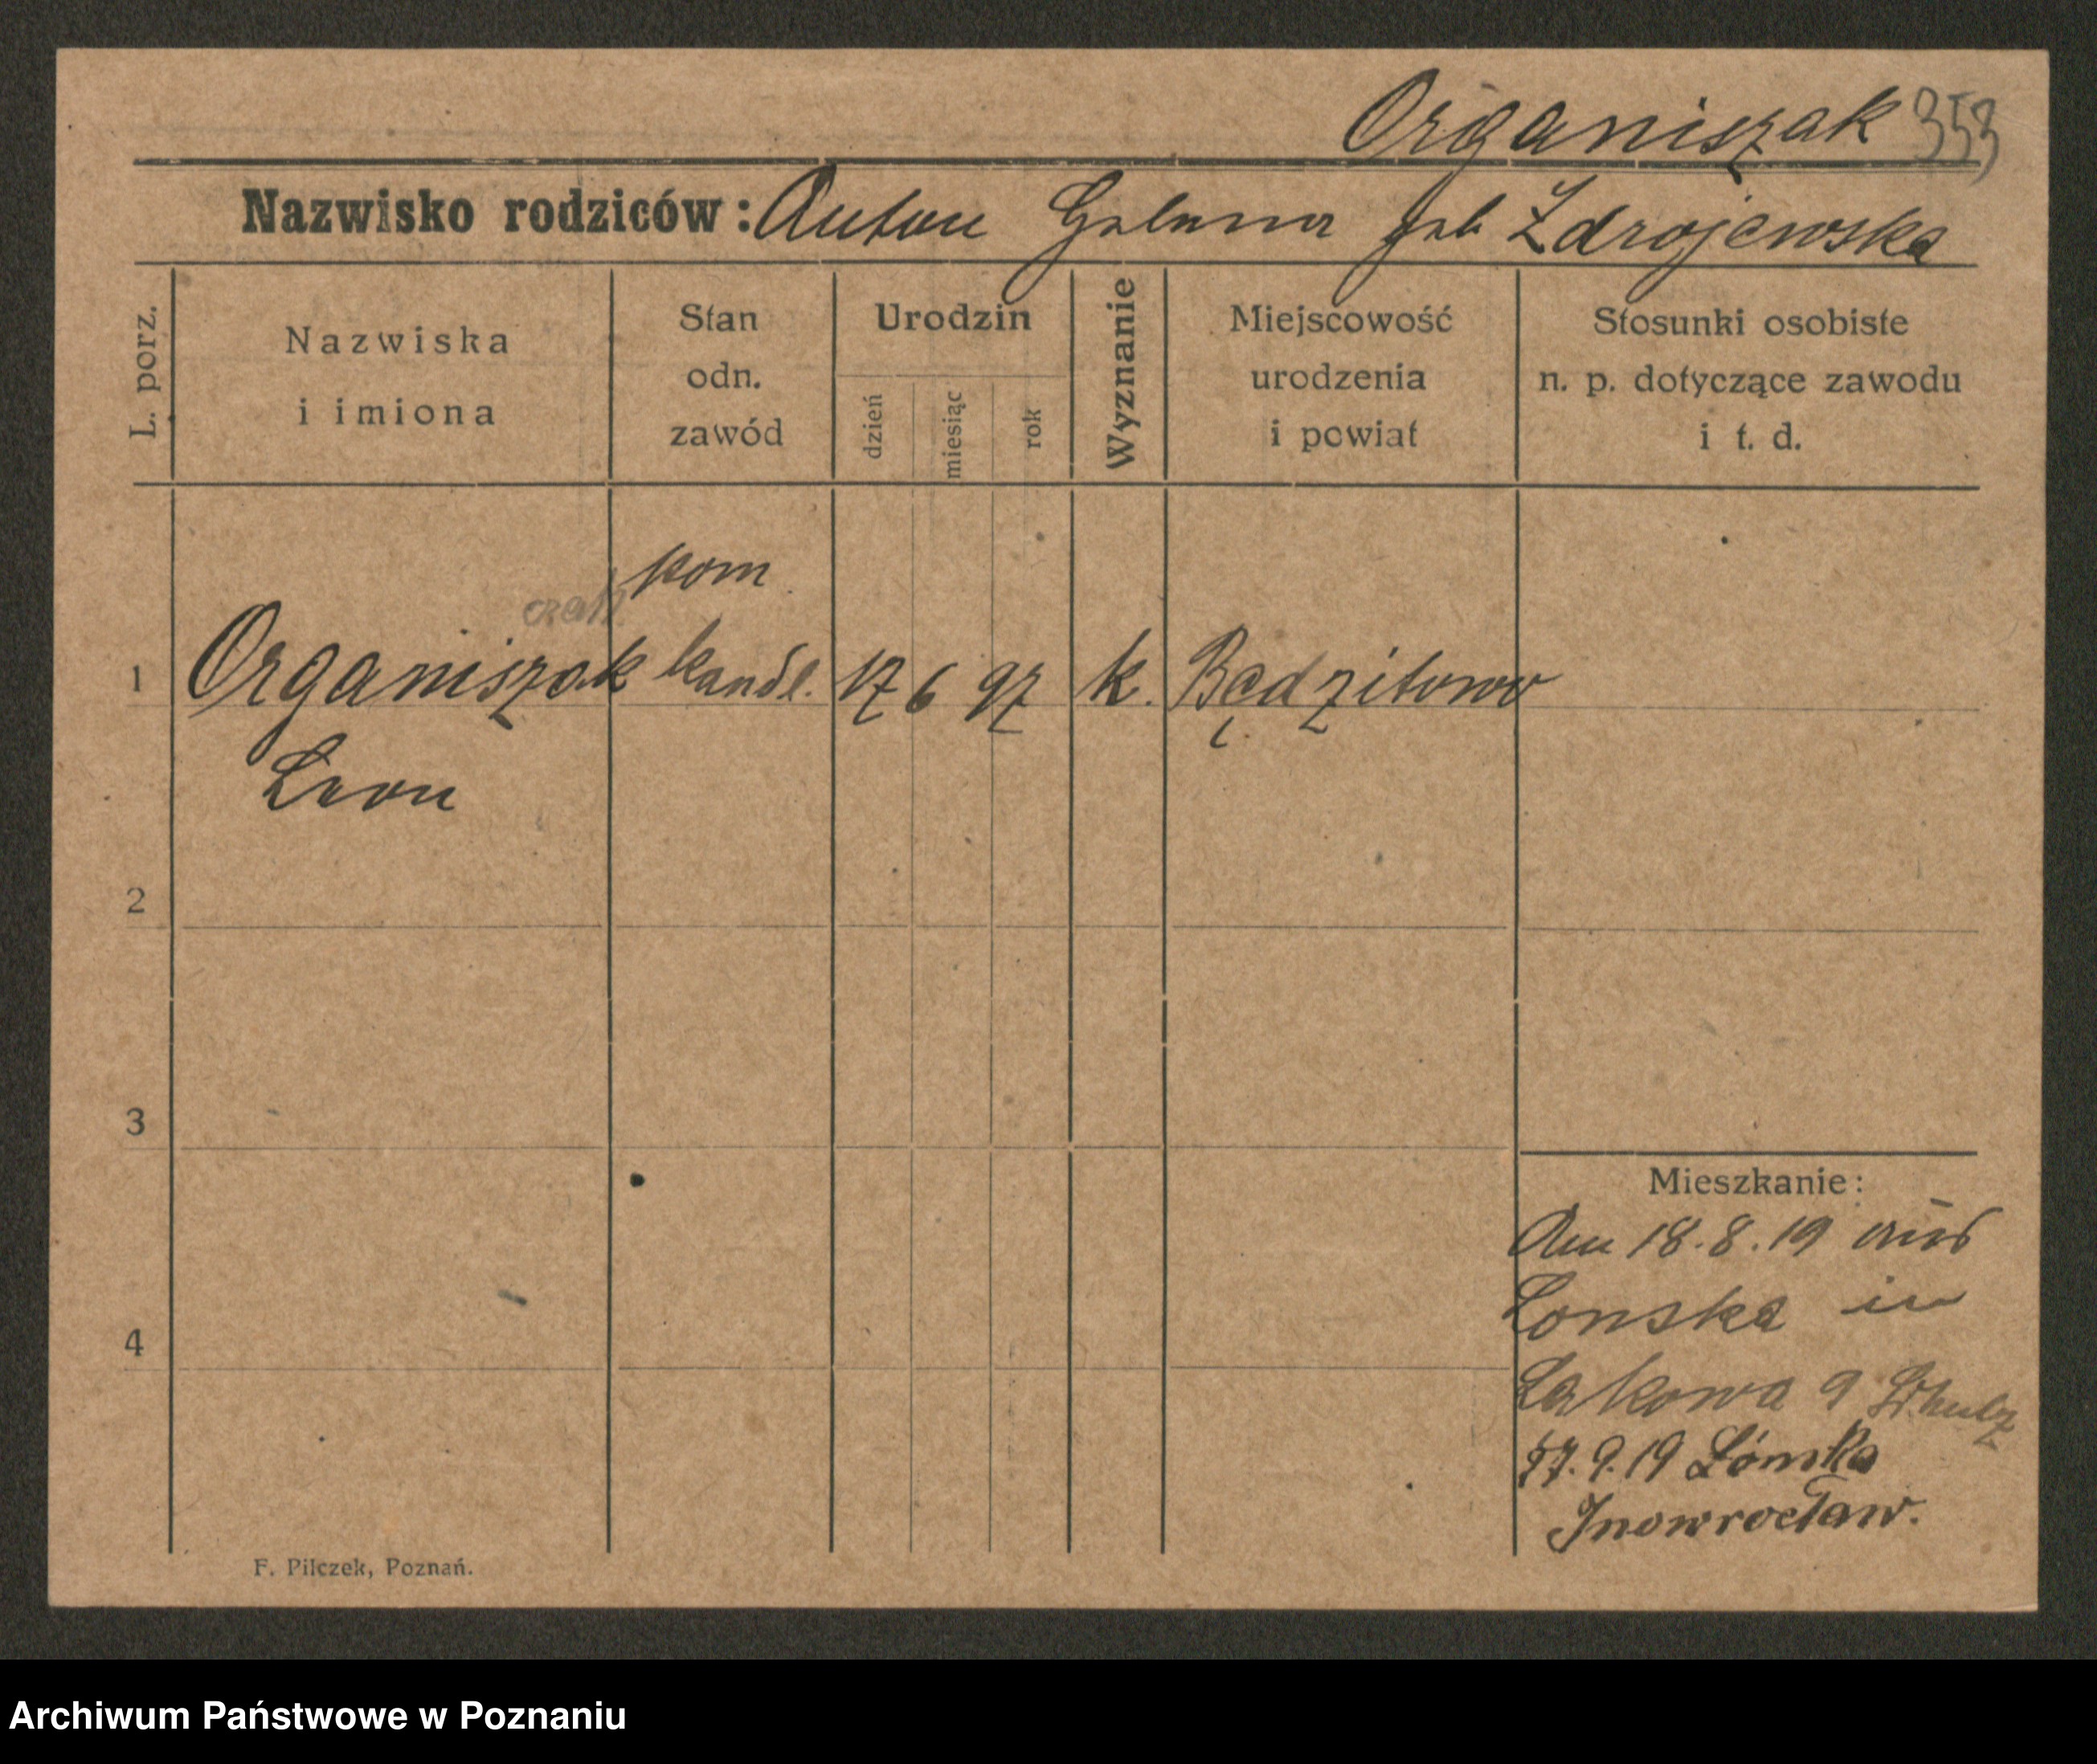 Organiszak 353
Nazwisko rodziców: Anton Helena geb Zdrojewska
L. porz.
Nazwiska
i imiona
Stan
odn.
zawód
Urodzin
dzień
miesiąc
rok
Wyznanie
Miejscowość
urodzenia
i powiat
Stosunki osobiste
n. p. dotyczące zawodu
i t. d.
kom
1 Organiszak kandl. 17 6 97 k. Będzitowo
Leon
2
3
4
Mieszkanie:
Am 18.8.19 aus
Lonska in
Lakowa 9
27.9.19 Lónska
Inowrocław.
F. Pilczek, Poznań.
Archiwum Państwowe w Poznaniu